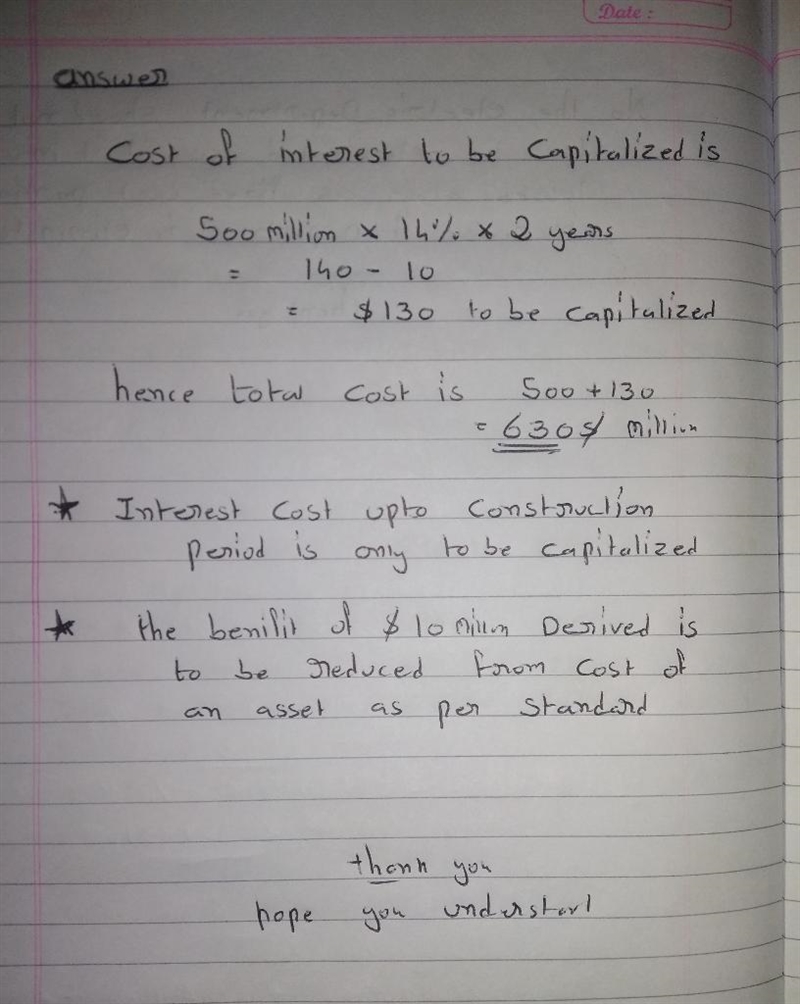 Date :
answer
Cost of interest to be Capitalized is
500 million × 14% × 2 years
= 140 - 10
= $130 to be capitalized
hence total cost is 500 + 130
= 630$ million
★ Interest Cost upto Construction
period is only to be capitalized
★ the benifit of $10 million Derived is
to be reduced from cost of
an asset as per Standard
thank you
hope you understand